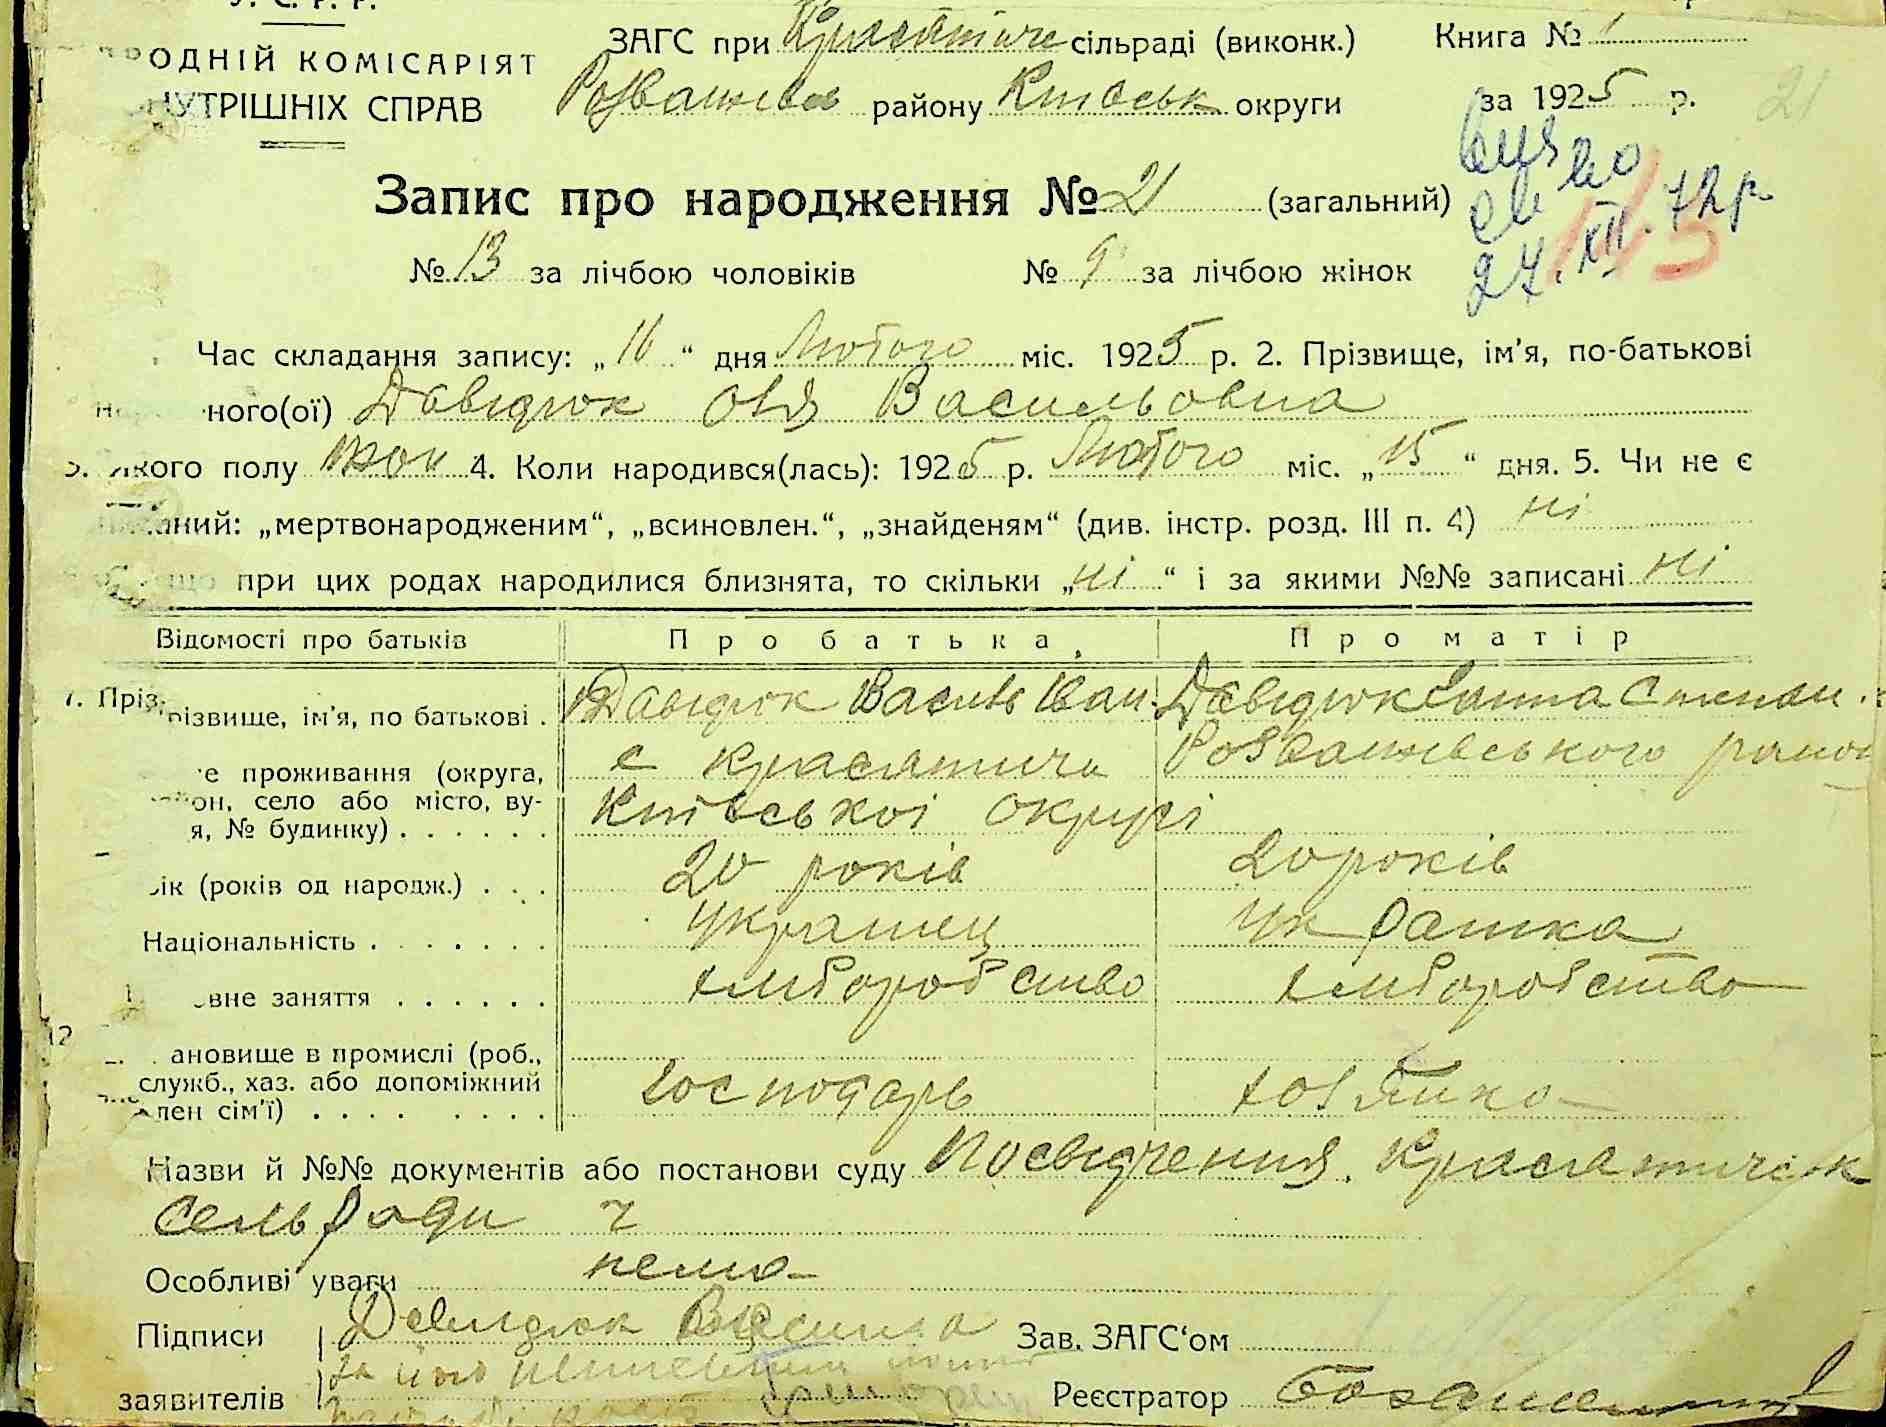 У. С. Р. Р.
ОДНІЙ КОМІСАРІЯТ
НУТРІШНІХ СПРАВ
ЗАГС при Красятиче сільраді (виконк.)
Розважев району Київськ округи
Книга № 1
за 1925 р.
21
27.XII.72 р.
Запис про народження № 21 (загальний)
№ 13 за лічбою чоловіків № 9 за лічбою жінок
Час складання запису: „16“ дня Лютого міс. 1925 р. 2. Прізвище, ім'я, по-батькові
ного(ої) Давидюк Овя Васильовна
якого полу жон 4. Коли народився(лась): 1925 р. Лютого міс. „15“ дня. 5. Чи не є
„мертвонародженим“, „всиновлен.“, „знайденям“ (див. інстр. розд. III п. 4) ні
що при цих родах народилися близнята, то скільки „ні“ і за якими №№ записані ні
Відомості про батьків Про батька Про матір
7. Прізвище, ім'я, по батькові . Давидюк Василь Іван. Давидюк Ганна Степан.
е проживання (округа, с Красятичи Розважевського район
он, село або місто, ву-
я, № будинку) . . . . . . Київської округі
ік (років од народж.) . . . 20 років 20 років
Національність . . . . . . . Украінец Украінка
вне заняття . . . . . . хліборобство хліборобство
12
ановище в промислі (роб.,
служб., хаз. або допоміжний
лен сім'ї) . . . . . . . . господарь хозяйка
Назви й №№ документів або постанови суду Посвідчення Красятическ
сельради
Особливі уваги нема
Підписи Давидюк Зав. ЗАГС'ом
за його
заявителів Реєстратор